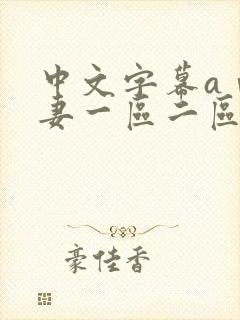 中文字幕a
妻一區二區
豪佳香